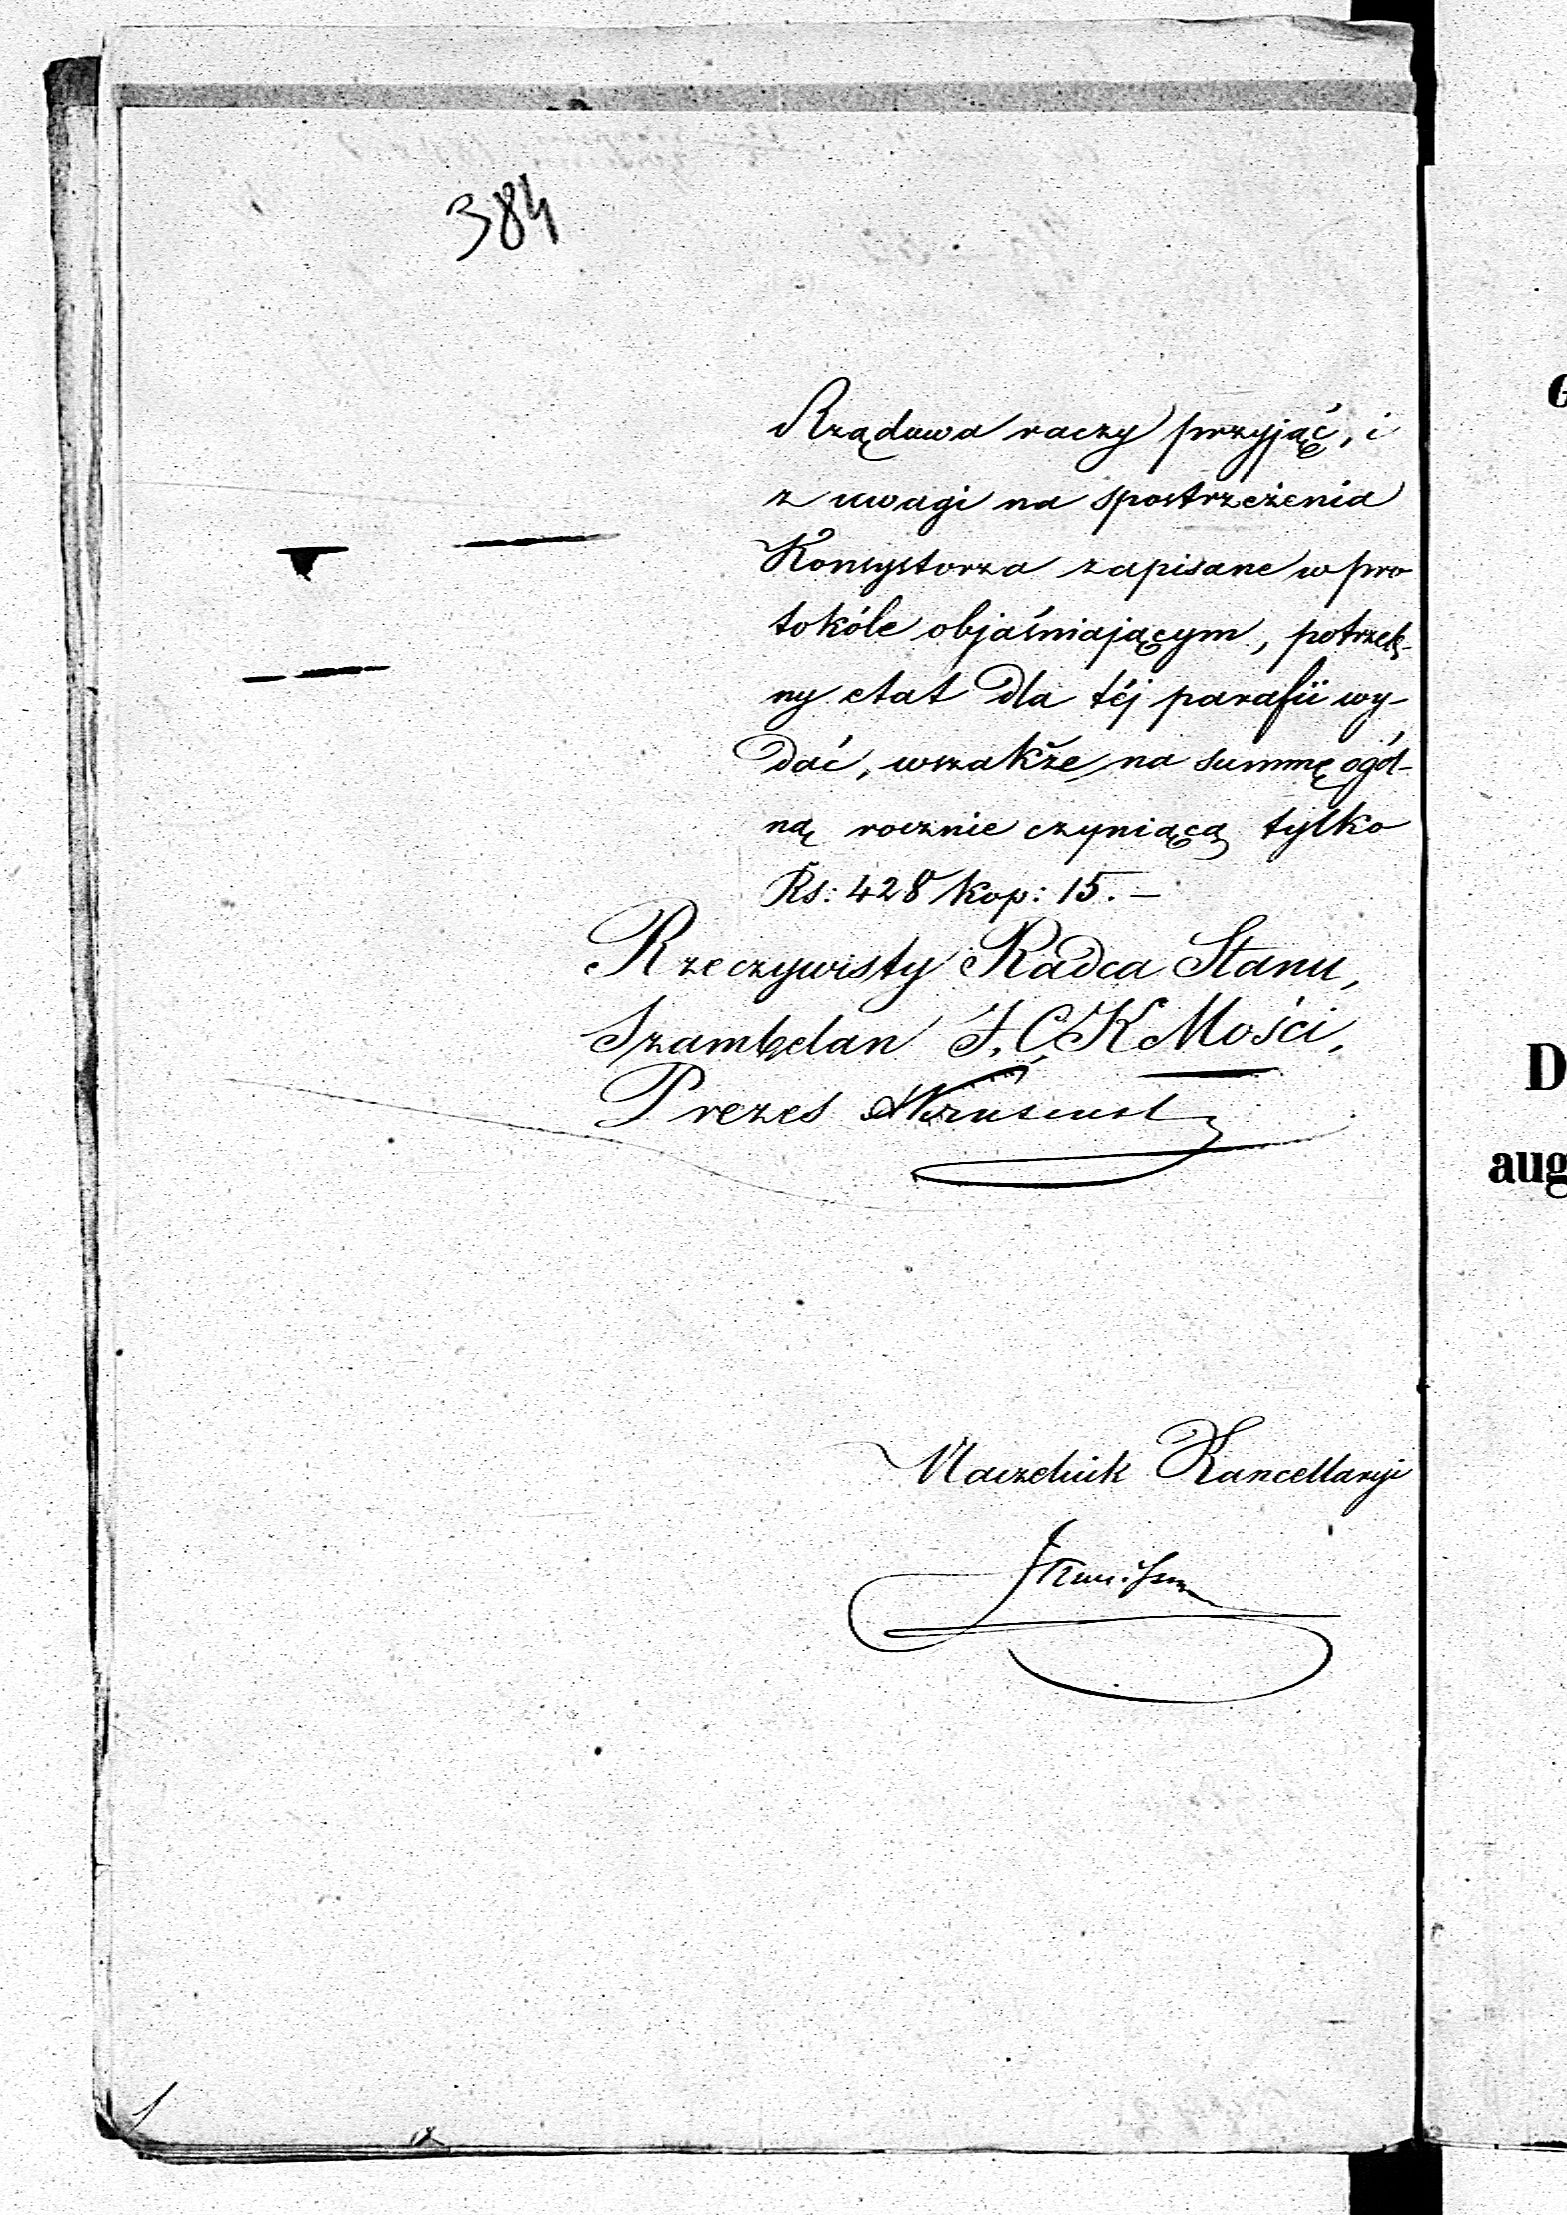 384
Rządowa raczy przyjąć, i
z uwagi na spostrzeżenia
Konsystorza zapisane w pro
tokóle objaśniającym, potrzeb-
ny etat dla téj parafii wy-
dać, wszakże na summę ogól-
ną rocznie czyniącą tylko
Rs: 428 kop: 15. —
Rzeczywisty Radca Stanu,
Szambelan J. C. K Mości,
Prezes
Naczelnik Kancellaryi
D
aug